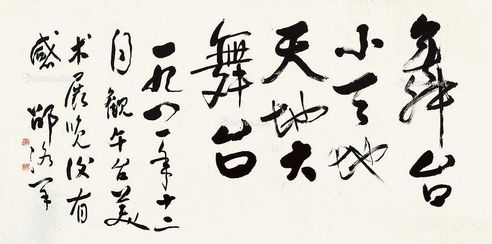 舞台
小天地
天地大
舞台
一九八一年十二
月觀午台美
术展览後有
感 邵洛羊